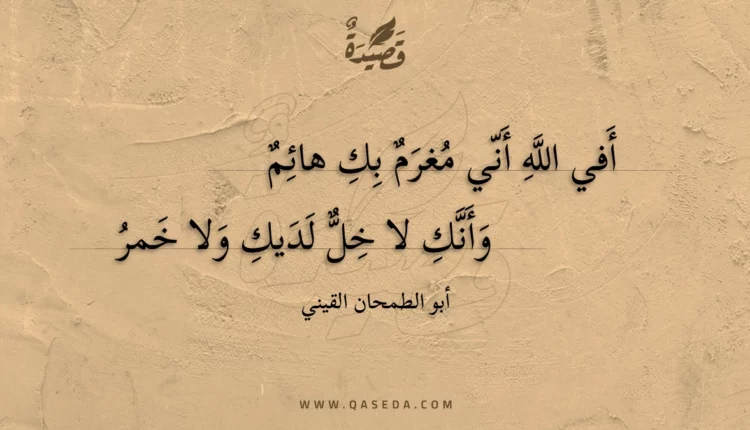 قَصِيدَةٌ
أَفي اللَهِ أَنّي مُغرَمٌ بِكِ هائِمٌ
وَأَنَّكِ لا خِلٌّ لَدَيكِ وَلا خَمرُ
أبو الطمحان القيني
WWW.QASEDA.COM